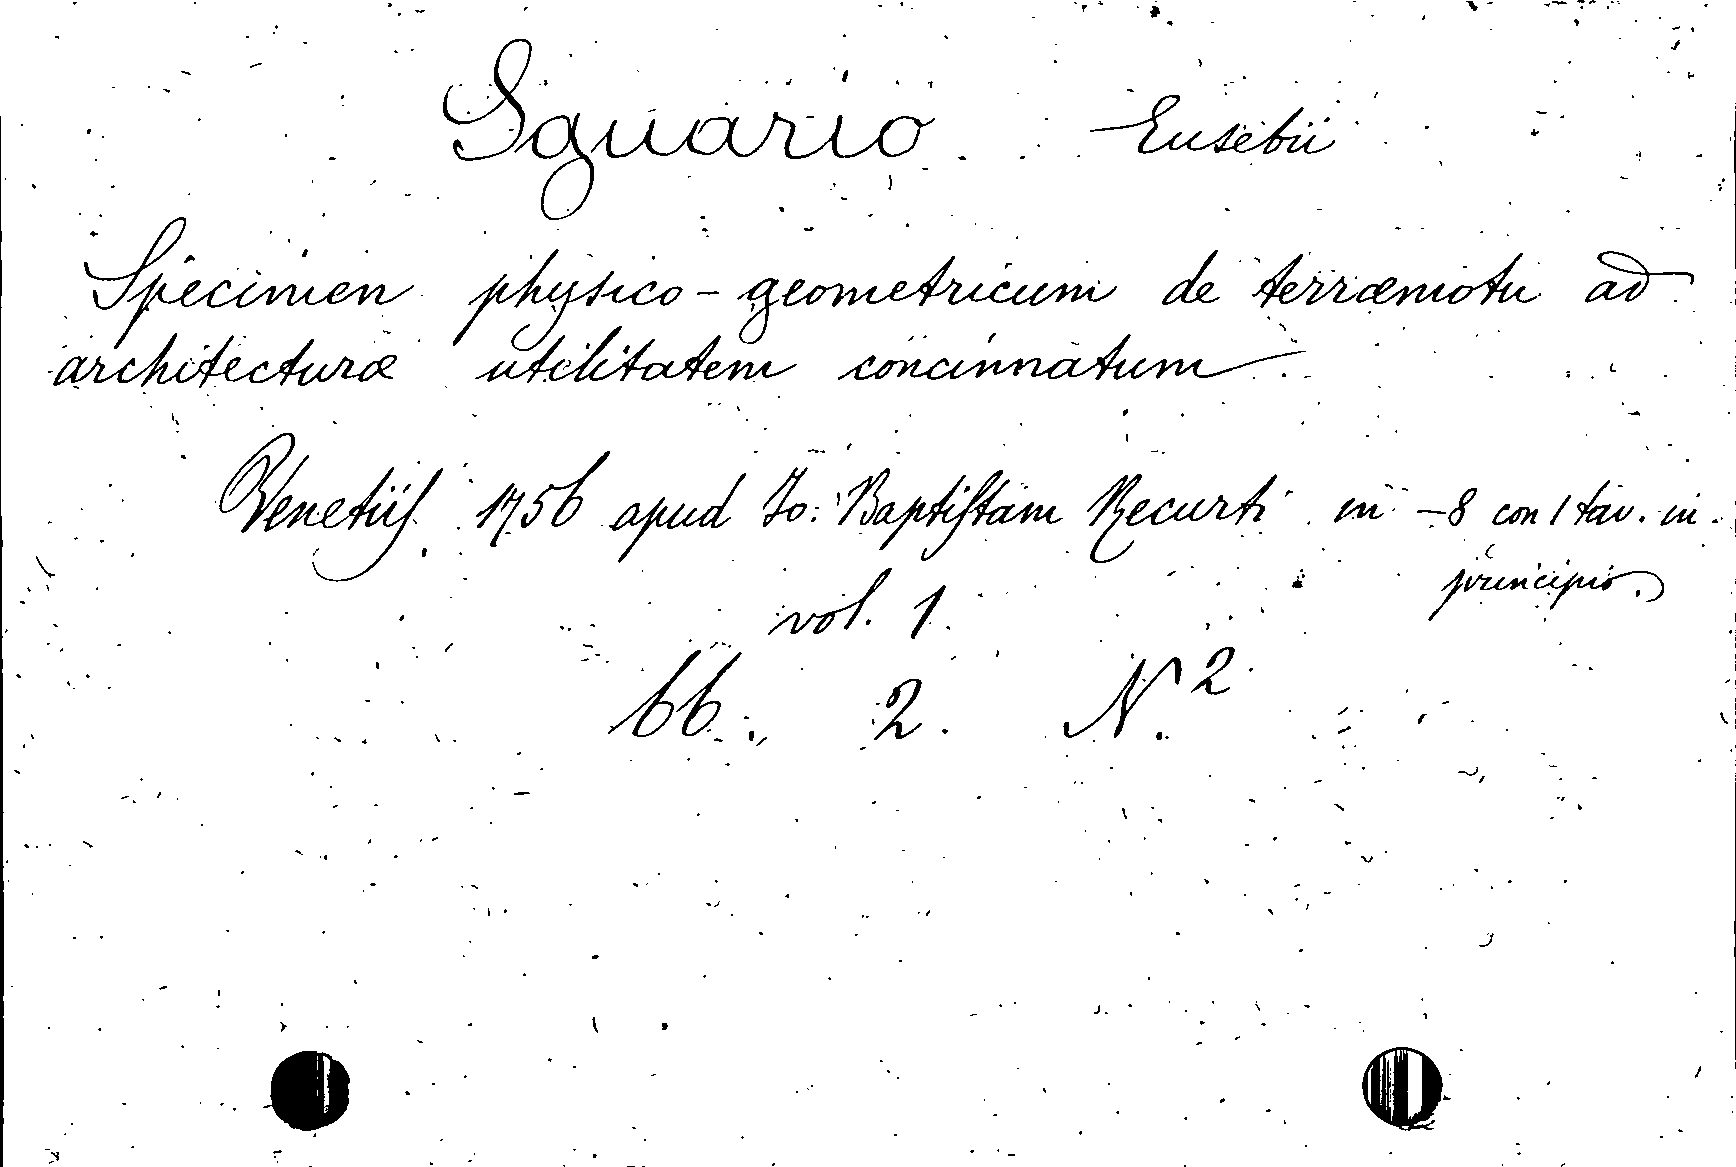 Sguario Eusebii
Specimen physico-geometricum de terræmotu ad
architecturæ utilitatem concinnatum
Venetiis 1756 apud Jo: Baptistam Recurti in -8 con 1 tav. in
principio.
vol. 1.
66. 2. N.2